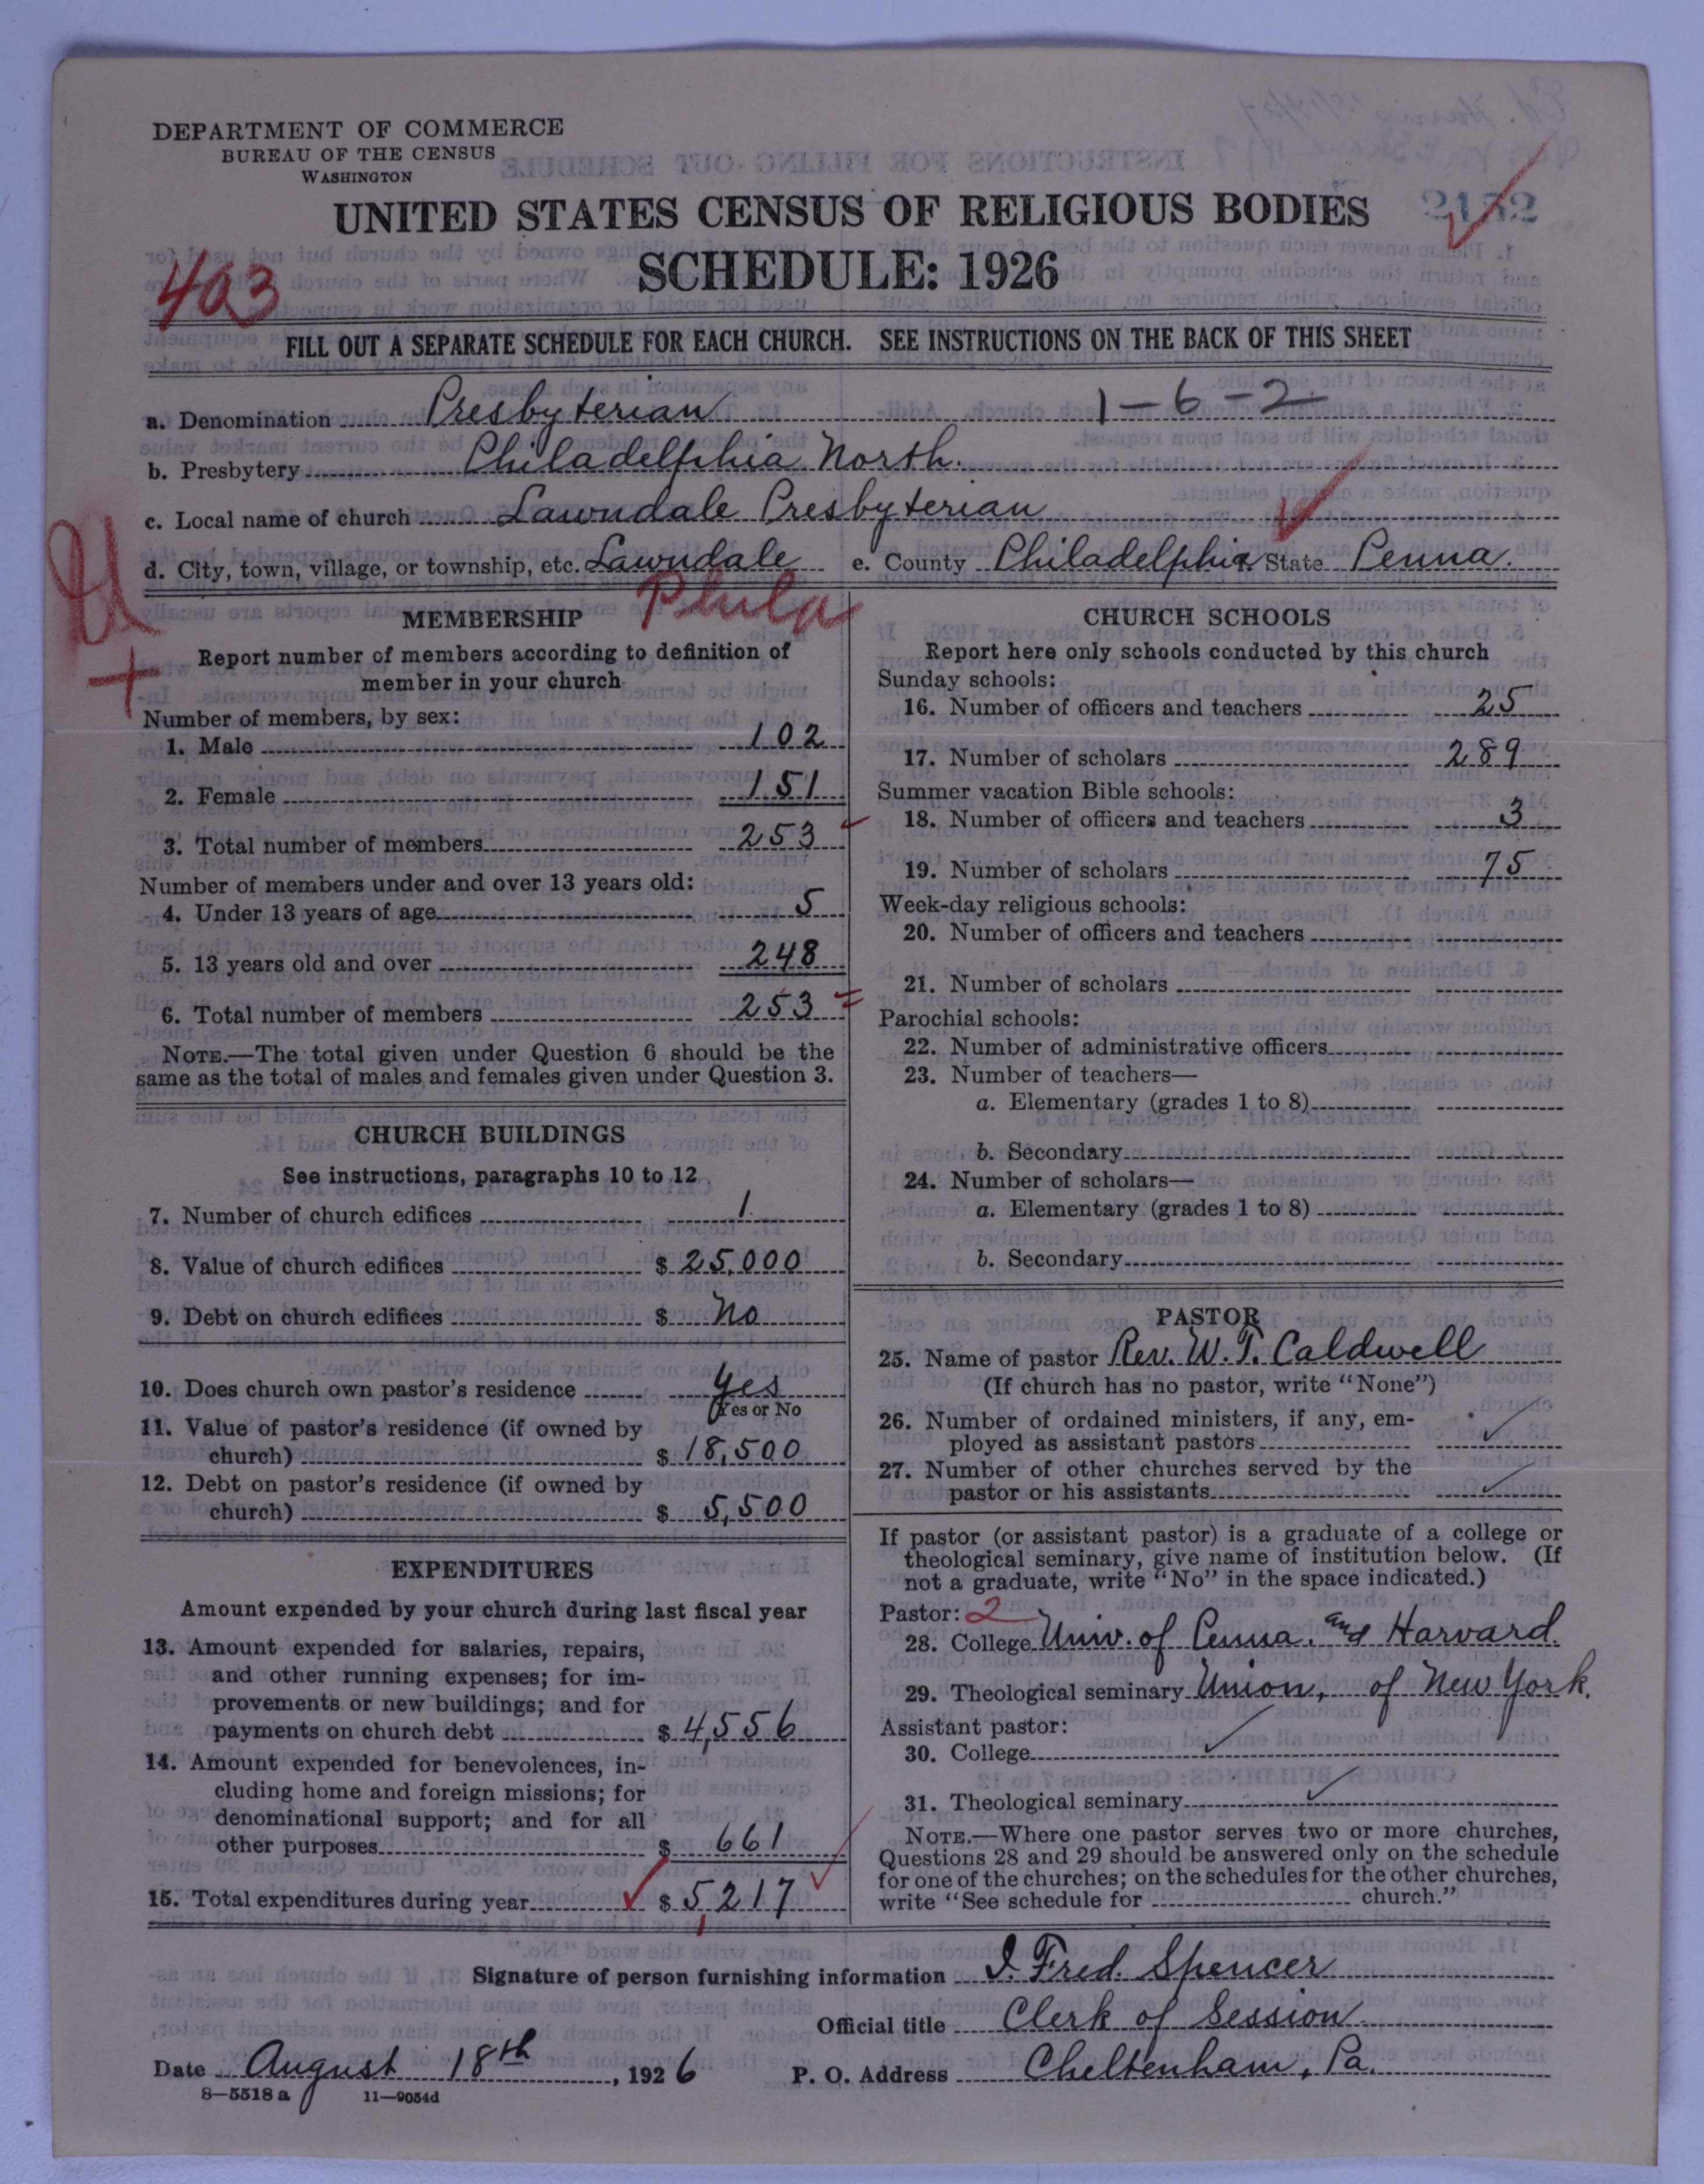 DEPARTMENT OF COMMERCE
BUREAU OF THE CENSUS
WASHINGTON
UNITED STATES CENSUS OF RELIGIOUS BODIES
2132
SCHEDULE: 1926
403
FILL OUT A SEPARATE SCHEDULE FOR EACH CHURCH. SEE INSTRUCTIONS ON THE BACK OF THIS SHEET
a. Denomination Presbyterian 1-6-2
b. Presbytery Philadelphia North.
c. Local name of church Lawndale Presbyterian
d. City, town, village, or township, etc. Lawndale e. County Philadelphia State Penna.
Phila
MEMBERSHIP
Report number of members according to definition of
member in your church
Number of members, by sex:
1. Male 102
2. Female 151
3. Total number of members 253
Number of members under and over 13 years old:
4. Under 13 years of age 5
5. 13 years old and over 248
6. Total number of members 253
NOTE.—The total given under Question 6 should be the
same as the total of males and females given under Question 3.
CHURCH BUILDINGS
See instructions, paragraphs 10 to 12
7. Number of church edifices 1
8. Value of church edifices $ 25,000
9. Debt on church edifices $ No
10. Does church own pastor's residence yes
(Yes or No
11. Value of pastor's residence (if owned by
church) $ 18,500
12. Debt on pastor's residence (if owned by
church) $ 5,500
EXPENDITURES
Amount expended by your church during last fiscal year
13. Amount expended for salaries, repairs,
and other running expenses; for im-
provements or new buildings; and for
payments on church debt $ 4,556
14. Amount expended for benevolences, in-
cluding home and foreign missions; for
denominational support; and for all
other purposes $ 661
15. Total expenditures during year $ 5,217
CHURCH SCHOOLS
Report here only schools conducted by this church
Sunday schools:
16. Number of officers and teachers 25
17. Number of scholars 289
Summer vacation Bible schools:
18. Number of officers and teachers 3
19. Number of scholars 75
Week-day religious schools:
20. Number of officers and teachers
21. Number of scholars
Parochial schools:
22. Number of administrative officers
23. Number of teachers—
a. Elementary (grades 1 to 8)
b. Secondary
24. Number of scholars—
a. Elementary (grades 1 to 8)
b. Secondary
PASTOR
25. Name of pastor Rev. W. T. Caldwell
(If church has no pastor, write "None")
26. Number of ordained ministers, if any, em-
ployed as assistant pastors
27. Number of other churches served by the
pastor or his assistants
If pastor (or assistant pastor) is a graduate of a college or
theological seminary, give name of institution below. (If
not a graduate, write "No" in the space indicated.)
Pastor: 2
28. College Univ. of Penna. and Harvard.
29. Theological seminary Union, of New York.
Assistant pastor:
30. College
31. Theological seminary
NOTE.—Where one pastor serves two or more churches,
Questions 28 and 29 should be answered only on the schedule
for one of the churches; on the schedules for the other churches,
write "See schedule for church."
Signature of person furnishing information I. Fred. Spencer
Official title Clerk of Session
Date August 18th, 1926 P. O. Address Cheltenham, Pa.
8—5518 a 11—9054d